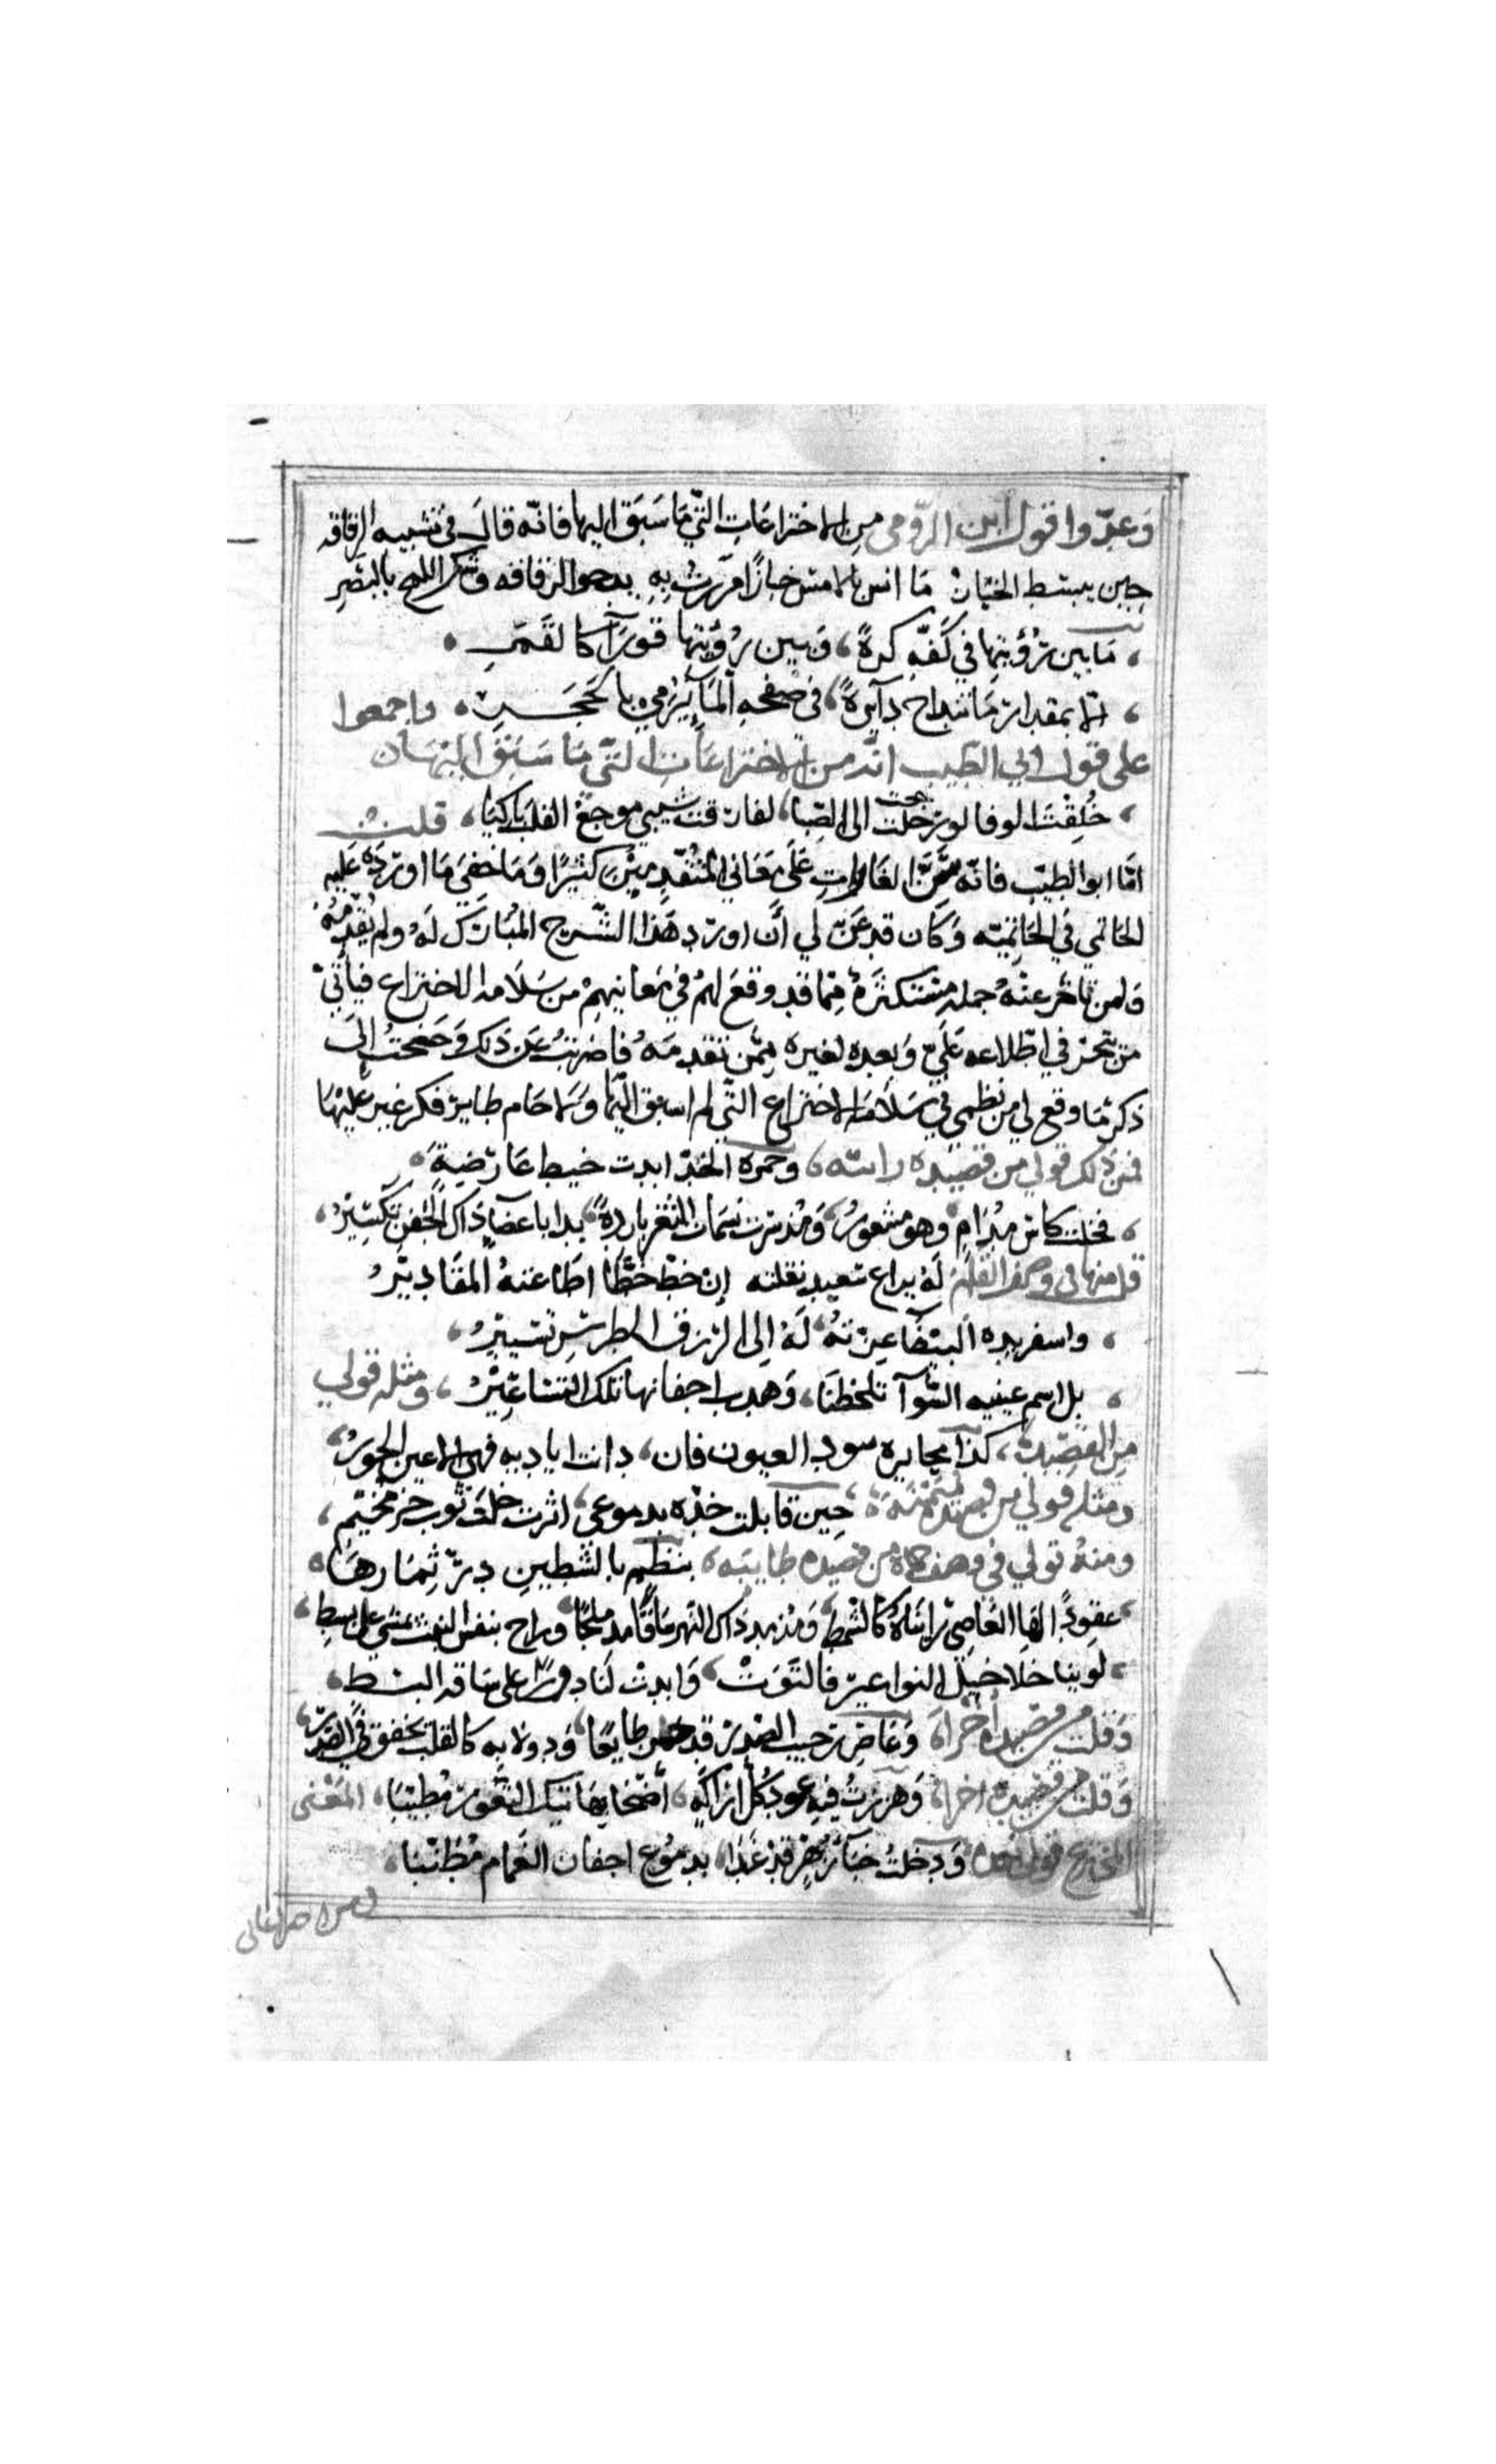 وَعدّوا قول ابن الرّومى من الاختراعَاتِ التّي مَا سَبَق اليها فانّه قالَ في تشبيه الرقاقه
حين يبسط الخبّاز مَا انس بالامس خبازًا مررْتُ بِهِ يدحوا الرقاقه وشكِ اللمح بالبَصَرِ
مَا بين رُؤيتها في كَفّهِ كرةً، وَبين رُؤيتها قورَآ كالقَمَرِ
الا بمقدار مَا تنداح دآيرةً، في صفحه المآ يُرمي بالحَجَرِ، واجمعوا
على قول ابي الطيب انّه من الاختراعَاتِ التّي مَا سَبَق اليْهَا
خُلِقْتُ الوفا لو رحلت الى الصِّبا، لفارقت شيبي موجَعَ القلب بَاكيًا، قلتُ
امّا ابو الطيّب فانّه شَنَّ الغَاراتِ عَلَى مَعَاني المُتقَدّمِيْن كثيْرًا وَمَا خفيَ مَا اورَدَه عَليه
الحَاتمي في الحَاتميّه وَكان قد عَنّ لي أن اورد هَذا الشّرح المُبَارَك لَهُ ولم يُقدّمهُ
وَلمن تاخر عنْهُ جمله مسْتكثَرَهُ مِمّا قد وقعَ لهُم في مَعانيهِمْ من سَلَامه الاختراع فيأتي
من يتحَرّ في اطّلاعه عَلَيّ وَيعده لغيره مِمّن تقدمَهُ فاضرَبتُ عَن ذَلِك وَجَنحتُ إِلَى
ذكر مَا وقع لي من نظمي في سَلَامَة الاختراع التّي لم اسبق اليْهَا وَلَا حَام طاير فكر غير عليْهَا
فمن ذلك قولي من قصيده رائيّه، وحمرة الخدّ ابدت خيط عَارضيه
فخلت كاس مُدَامٍ وهو مشعورُ، وَمُذ سَرت نسَمات الثّغر باردةً، بدا باعضآ ذاك الجفْن تكْسِيْرُ،
قلت منها في وصف القلَم لَهُ يراع سَعيد نقلته إنْ خطّ خَطًّا اطَاعَتهُ المقَاديْرُ
واسفر يده البَيْضَآ عِزّتهُ، لَهُ إِلى الرّزق في الطرسِ تيسيْرُ،
بل اسمر عينيه السّودَآ تلحَظنَا، وَهدب اجفانها تلك التشَاعِيْرُ، ومثله قولي
مِن القصيْدَة، كذا محابره سود العيون فان، دانت اياديه فهي الاعين الحورُ،
ومثله قولي من قصيْده مُيمّيّه، حِين قابلت خدّه بدموعي، اثرت خلف ثوب خز مختّم،
ومنهُ قولي في وصف حماة من قصيده طاييّه، بنظم بالشطينِ درّ ثِمَارهَا
عقودًا لها العَاصِي رايناهُ كالسّمط، وَمذ مد ذَاك النّهر سَاقًا مدملجًا، وراح بنقش النبت يمشي على بسط،
لوينا خلاخيل النواعير فالتوَتْ، وَابدتْ لنا دورًا على سَاقه البسط،
وَقلت من قصيْدة أخرَا، وَعَاضِر رَحيب الصّدر قد طايعًا، ودولابه كالقلب يخفق في الصّدر،
وَقلت من قصيدة اخرا، وَهززت فيه عود كُل ارَاكَةٍ، أضحَا بهَاتيك الثّغور مُطيّبًا، المعْنى
المخترع قولي بَعده وَدخلتُ خبَآ زَهْرٍ قدْ غَدَا، بدمُوع اجفان الغمَام مُطَنّبَا،